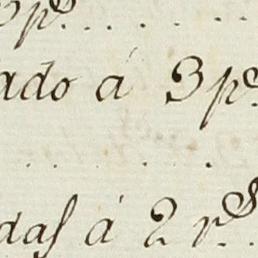 3 p.s
ado á 3 p.s
das á 2 r.s